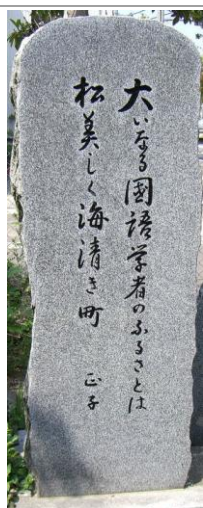 大いなる國語学者のふるさとは
松美しく海清き町
正子